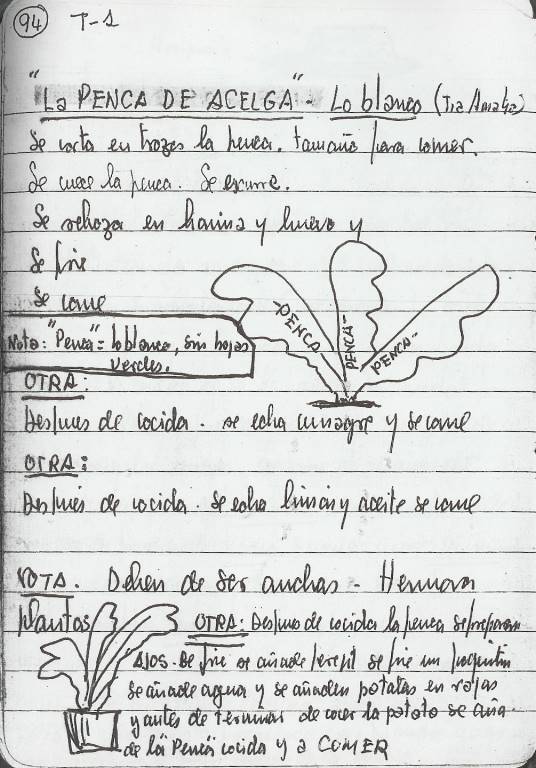 94 T-1
"La PENCA DE ACELGA" - Lo blanco (Tia Amalia)
Se corta en trozos la penca. tamaño para comer.
Se cuece la penca. Se escurre.
Se reboza en harina y huevo y
Se frie
Se come
Nota: "Penca" = lo blanco, sin hojas
verdes.
-PENCA
PENCA-
PENCA-
OTRA:
Después de cocida. se echa vinagre y se come
OTRA:
Después de cocida. Se echa limón y aceite se come
NOTA. Deben de ser anchas - Hermosa
plantas
OTRA: Después de cocida la penca se preparan
AJOS. Se frie se añade perejil se frie un poquitin
Se añade agua y se añaden patatas en rajas
y antes de terminar de cocer la patata se aña-
de la "Penca" cocida y a COMER